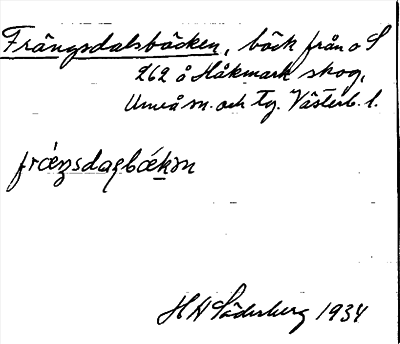 Frängsdalsbäcken, bäck från o S
262 å Håkmark skog,
Umeå sn. och tg. Västerb. l.
fráŋsdaɽbǽkən
H A Söderberg 1934